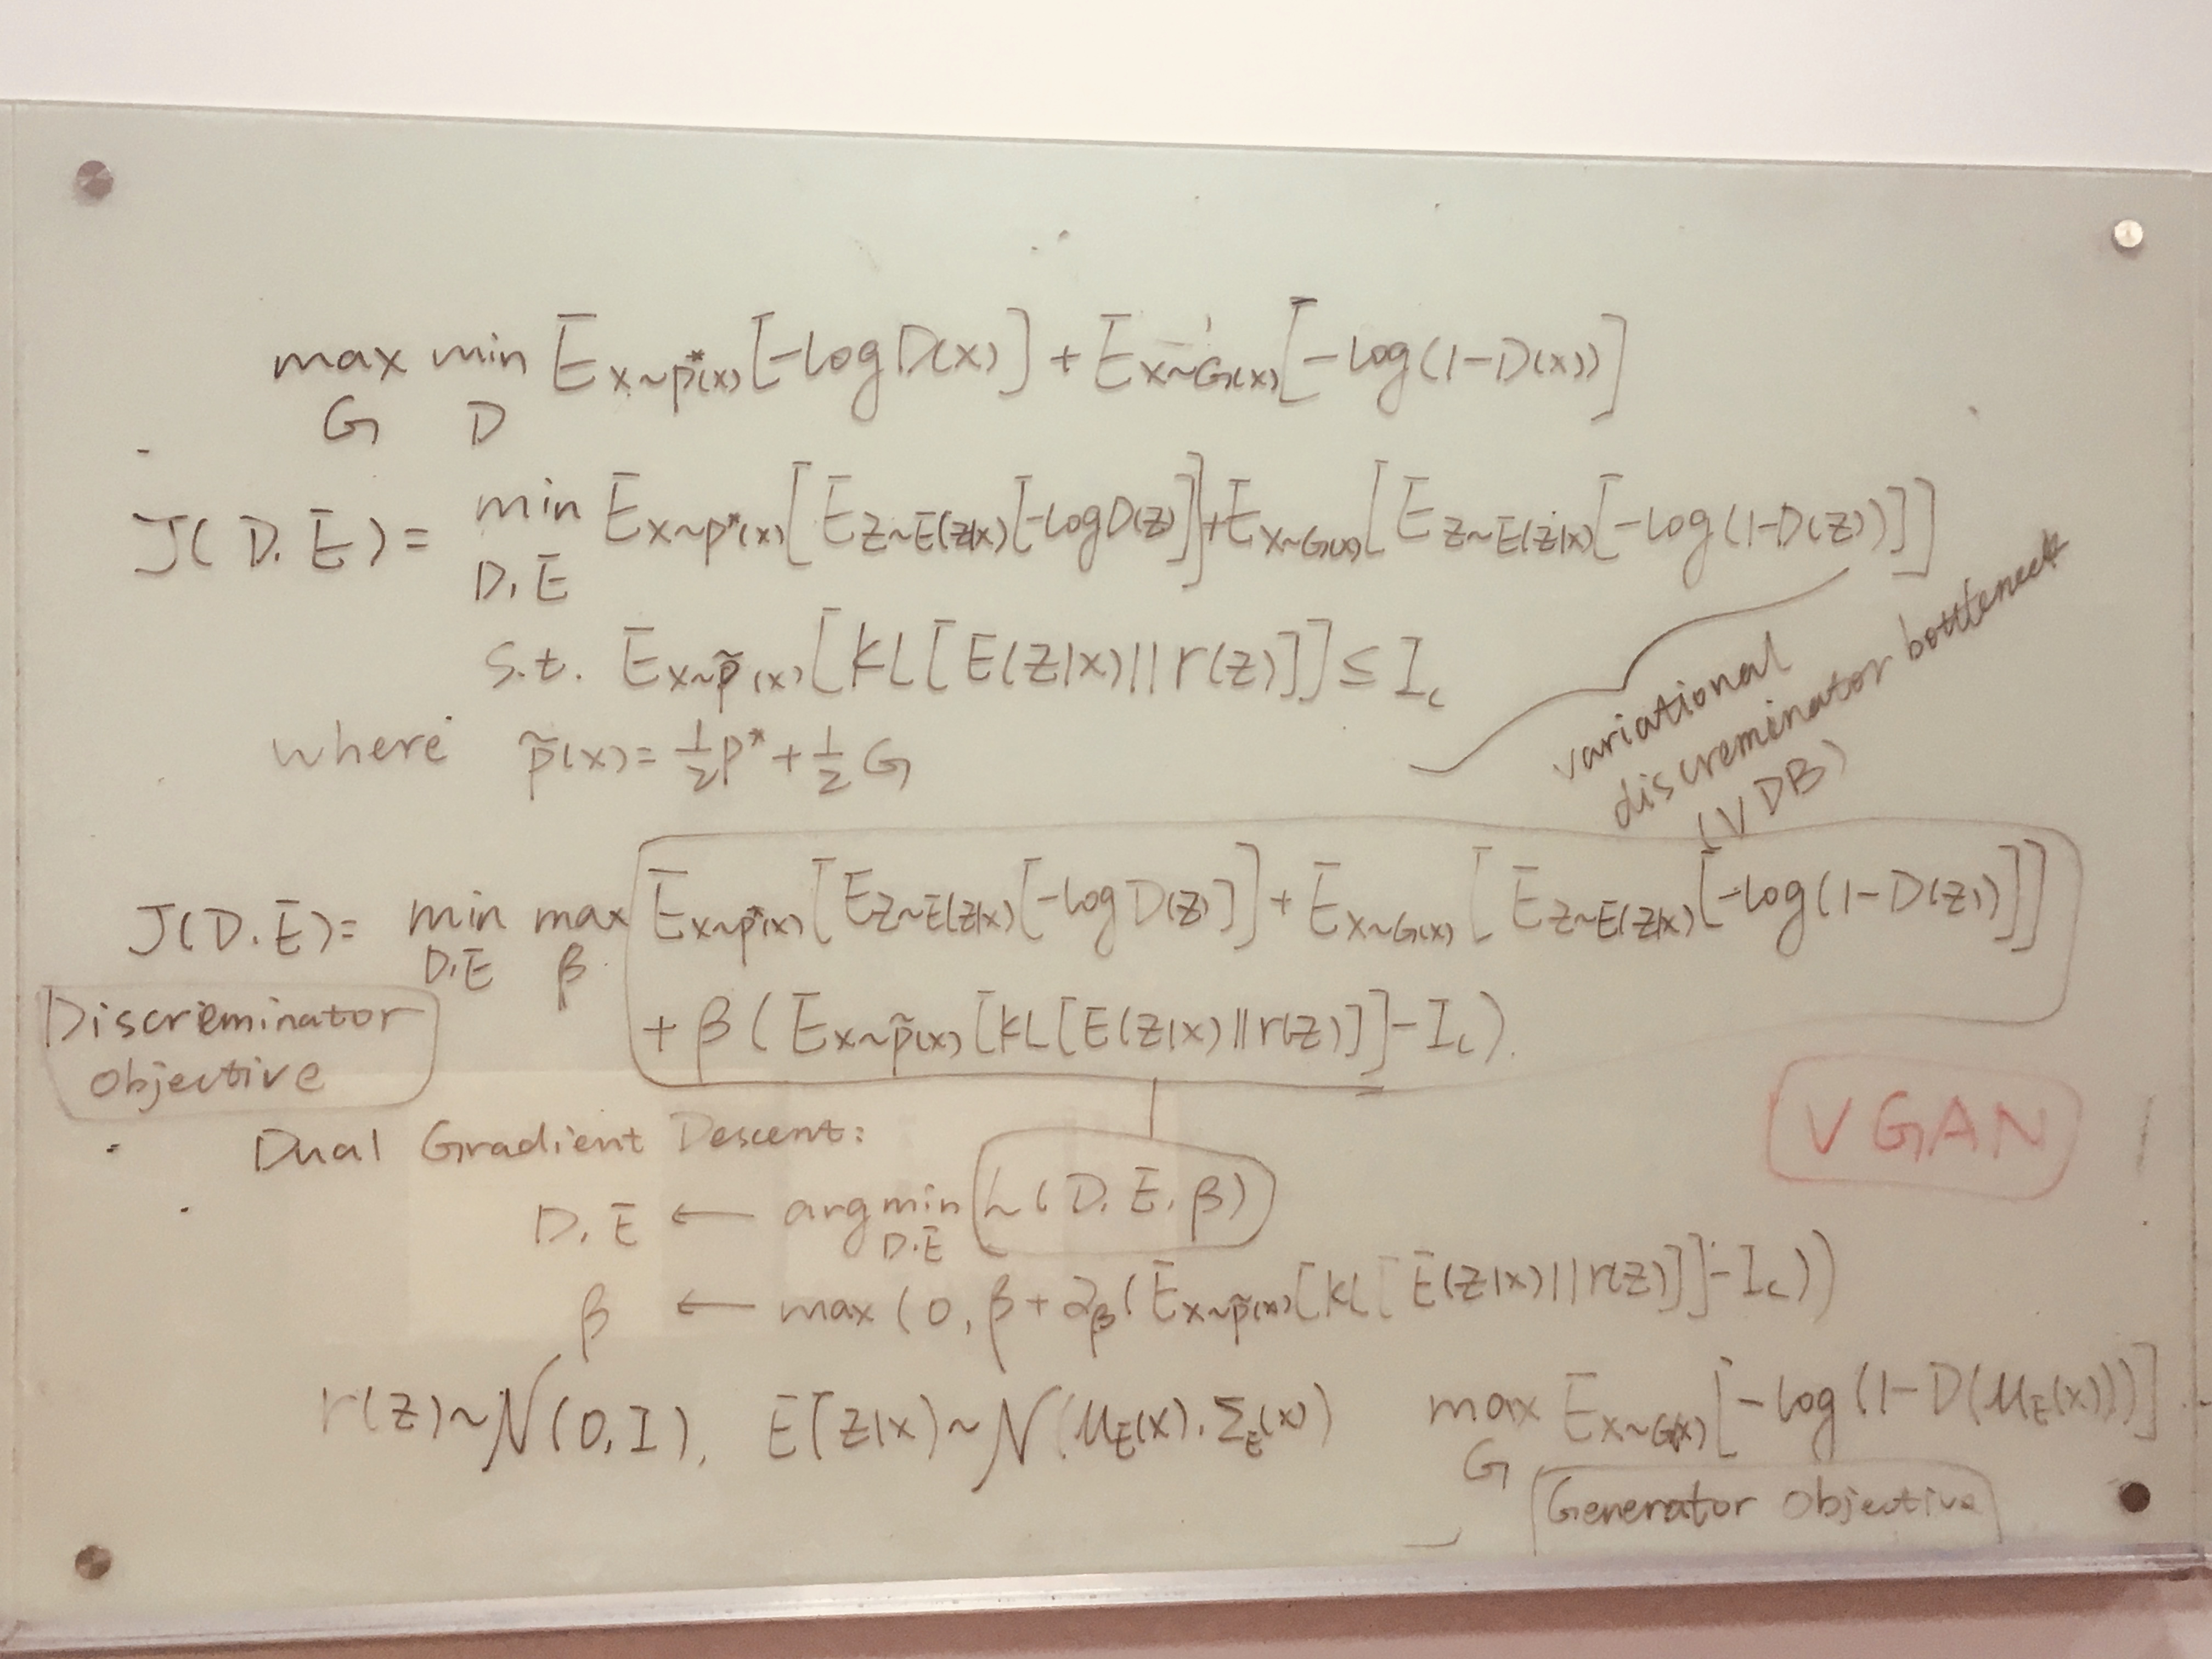 max min E_{x~p*(x)}[-log D(x)] + E_{x~G(x)}[-log(1-D(x))]
G D
J(D.E) = min E_{x~p*(x)}[E_{z~E(z|x)}[-log D(z)]] + E_{x~G(x)}[E_{z~E(z|x)}[-log(1-D(z))]]
D,E
s.t. E_{x~p̃(x)}[KL[E(z|x)||r(z)]] ≤ I_c
where p̃(x) = ½p* + ½G
variational
discreminator bottleneck
(VDB)
J(D.E) = min max E_{x~p*(x)}[E_{z~E(z|x)}[-log D(z)]] + E_{x~G(x)}[E_{z~E(z|x)}[-log(1-D(z))]]
D,E β
+ β(E_{x~p̃(x)}[KL[E(z|x)||r(z)]] - I_c).
Discreminator
objective
VGAN
Dual Gradient Descent:
D,E ← argmin L(D,E,β)
D.E
β ← max(0, β + α_β(E_{x~p̃(x)}[KL[E(z|x)||r(z)]] - I_c))
r(z) ~ N(0,I), E(z|x) ~ N(μ_E(x), Σ_E(x)) max E_{x~G(x)}[-log(1-D(μ_E(x)))]
G
Generator Objective